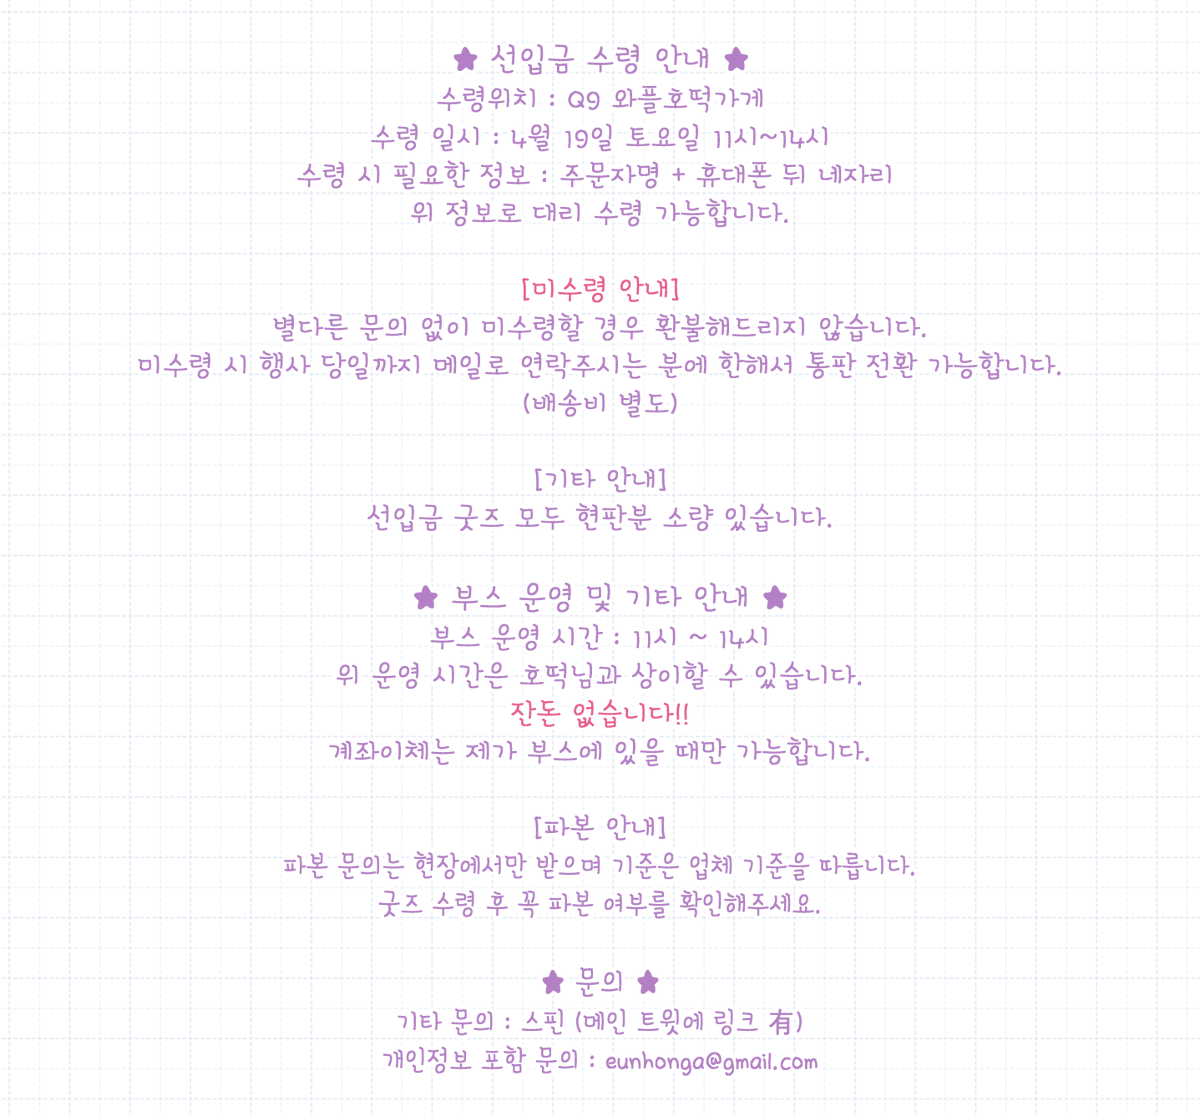 ★ 선입금 수령 안내 ★
수령위치 : Q9 와플호떡가게
수령 일시 : 4월 19일 토요일 11시~14시
수령 시 필요한 정보 : 주문자명 + 휴대폰 뒤 네자리
위 정보로 대리 수령 가능합니다.
[미수령 안내]
별다른 문의 없이 미수령할 경우 환불해드리지 않습니다.
미수령 시 행사 당일까지 메일로 연락주시는 분에 한해서 통판 전환 가능합니다.
(배송비 별도)
[기타 안내]
선입금 굿즈 모두 현판분 소량 있습니다.
★ 부스 운영 및 기타 안내 ★
부스 운영 시간 : 11시 ~ 14시
위 운영 시간은 호떡님과 상이할 수 있습니다.
잔돈 없습니다!!
계좌이체는 제가 부스에 있을 때만 가능합니다.
[파본 안내]
파본 문의는 현장에서만 받으며 기준은 업체 기준을 따릅니다.
굿즈 수령 후 꼭 파본 여부를 확인해주세요.
★ 문의 ★
기타 문의 : 스핀 (메인 트윗에 링크 有)
개인정보 포함 문의 : eunhonga@gmail.com